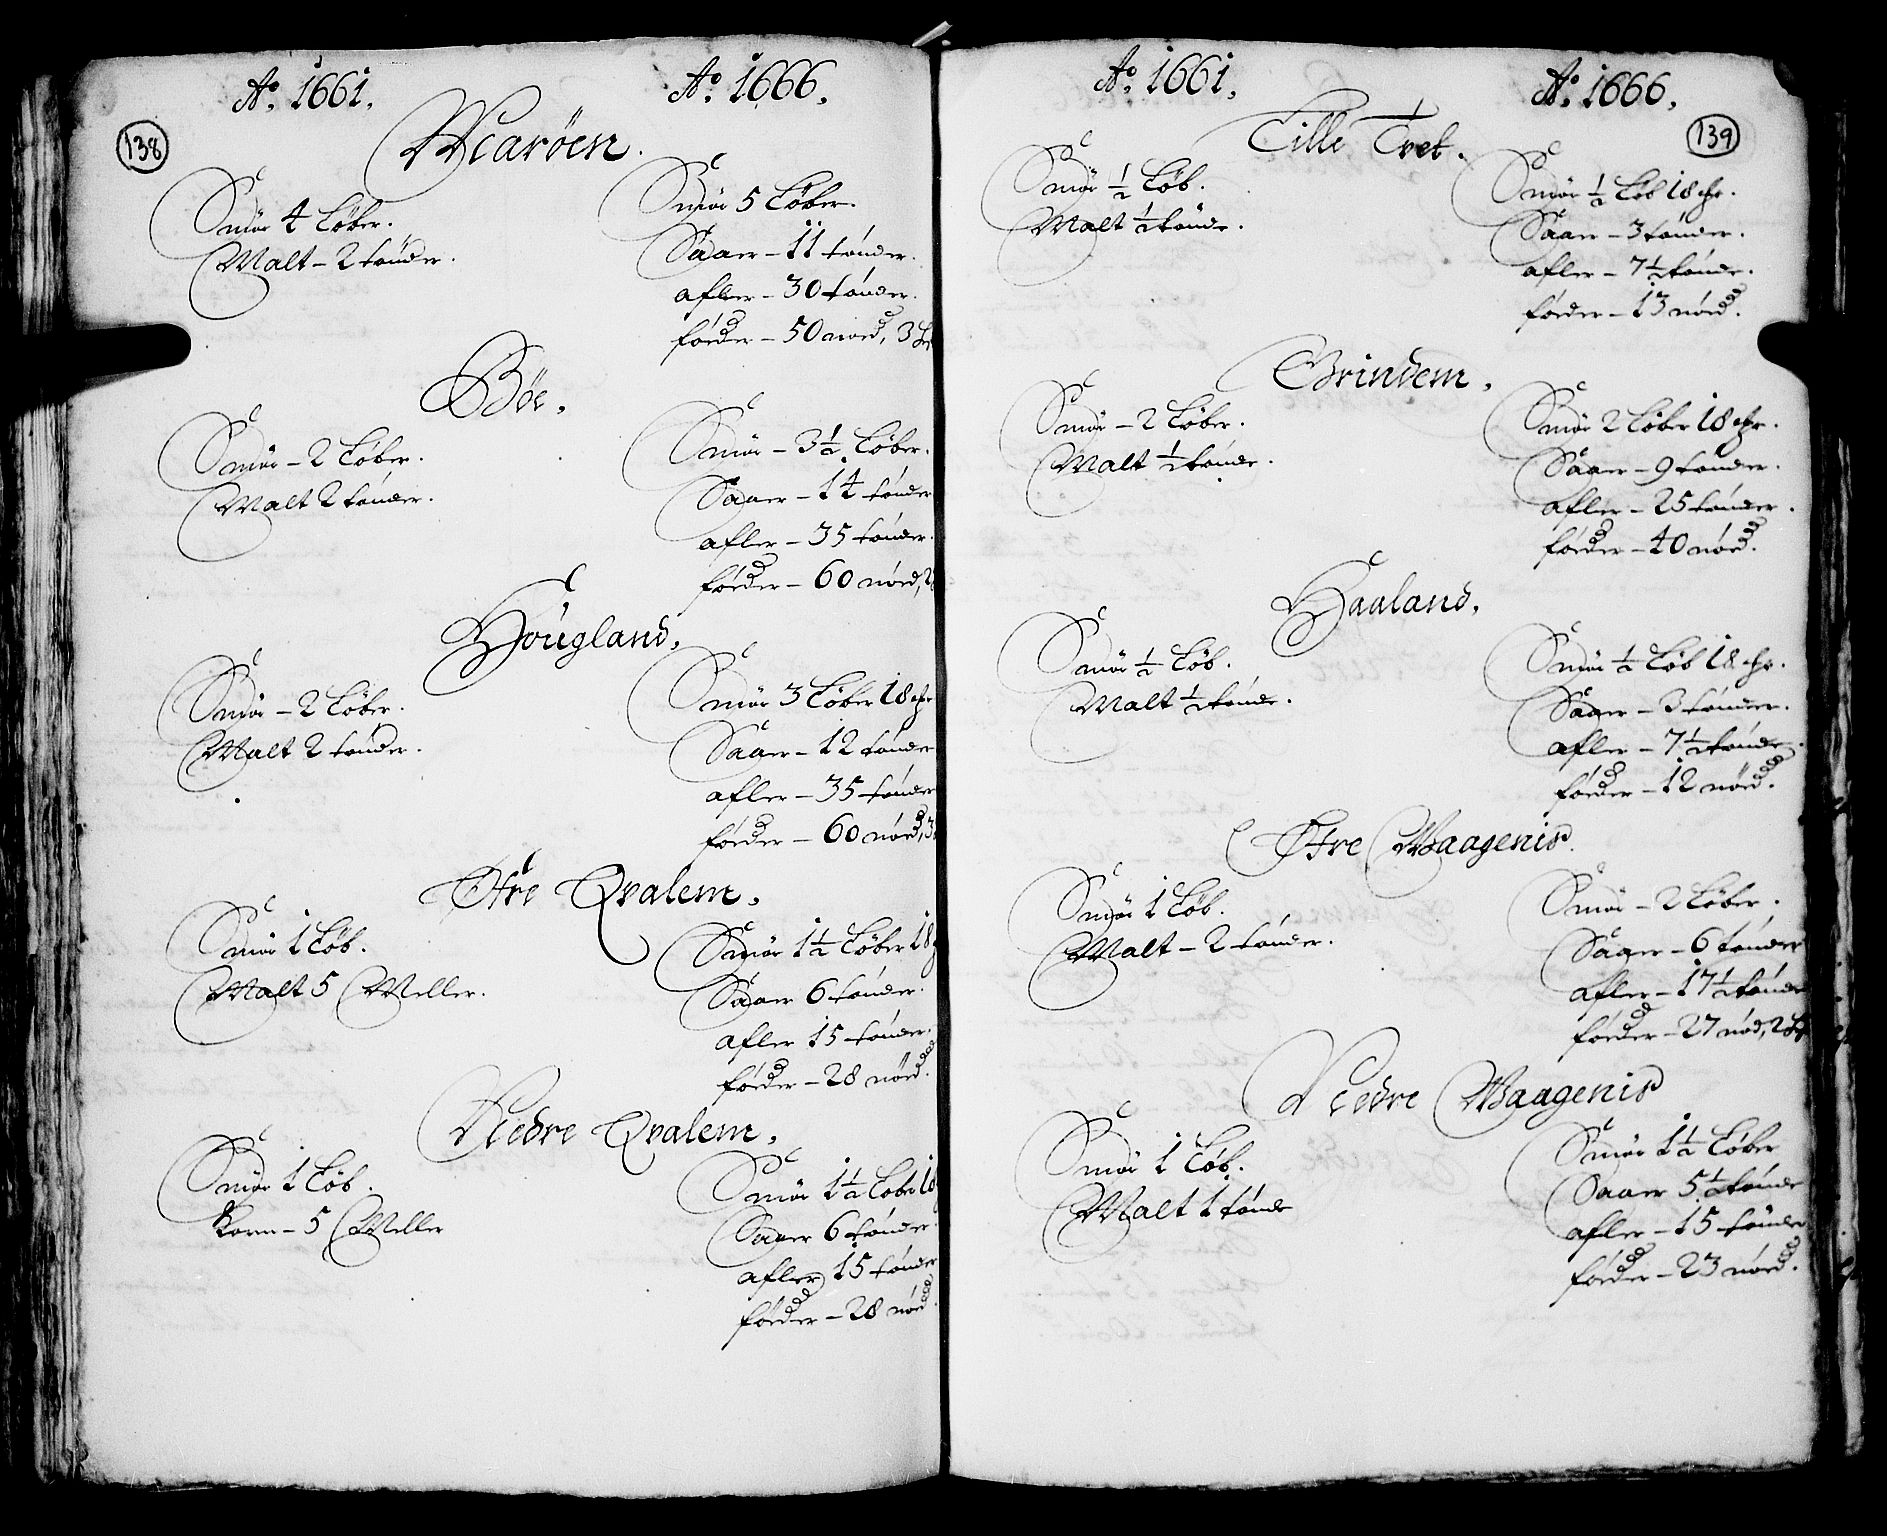 138
Ao. 1661. Ao. 1666.
Marøen.
Smör 4 Løber.
Malt – 2 tønder.
Smör 5 Løber.
Saaer – 11 tønder.
afler – 30 tønder.
föeder – 50 nöed, 3
Böe.
Smör – 2 Løber.
Malt 2 tönder.
Smör – 3½ Løber.
Saaer – 14 tönder
afler – 35 tönder.
föeder – 60 nöed,
Hougland.
Smör – 2 Løber.
Malt 2 tönder.
Smör 3 Løber 18
Saaer – 12 tönder
afler – 35 tönder
föeder – 60 nöed, 3
Øfre Qvalem.
Smör 1 Løb.
Malt 5 Meller.
Smör 1½ Løber 18
Saaer 6 tönder.
afler 15 tönder.
föeder – 28 nöed.
Nedre Qvalem.
Smör 1 Løb.
Korn – 5 Meller
Smör 1½ Løber 18
Saaer 6 tönder
afler 15 tönder
föeder – 28 nöed.
139
Ao. 1661. Ao. 1666.
Lille Tvet.
Smör ½ Løb.
Malt ½ tönde.
Smör ½ Løb 18 mr.
Saaer – 3 tönder.
afler – 7½ tönde.
föeder – 13 nöed.
Grindem.
Smör – 2 Løber.
Malt ½ tönde.
Smör 2 Løber 18 mr.
Saaer – 9 tönder.
afler – 25 tönder.
föeder – 40 nöed.
Haaland.
Smör ½ Løb.
Malt ½ tönde.
Smör ½ Løb 18 mr.
Saaer – 3 tönder.
afler – 7½ tönde.
föeder – 12 nöed.
Øfre Waagenis.
Smör 1 Løb.
Malt – 2 tönder.
Smör – 2 Løber.
Saaer – 6 tönder
afler – 17½ tönde
föeder – 27 nöd, 2
Nedre Waagenis
Smör 1 Løb.
Malt 1 tönde
Smör 1½ Løber
Saaer 5½ tönde
afler – 15 tönder
föeder – 23 nöed.